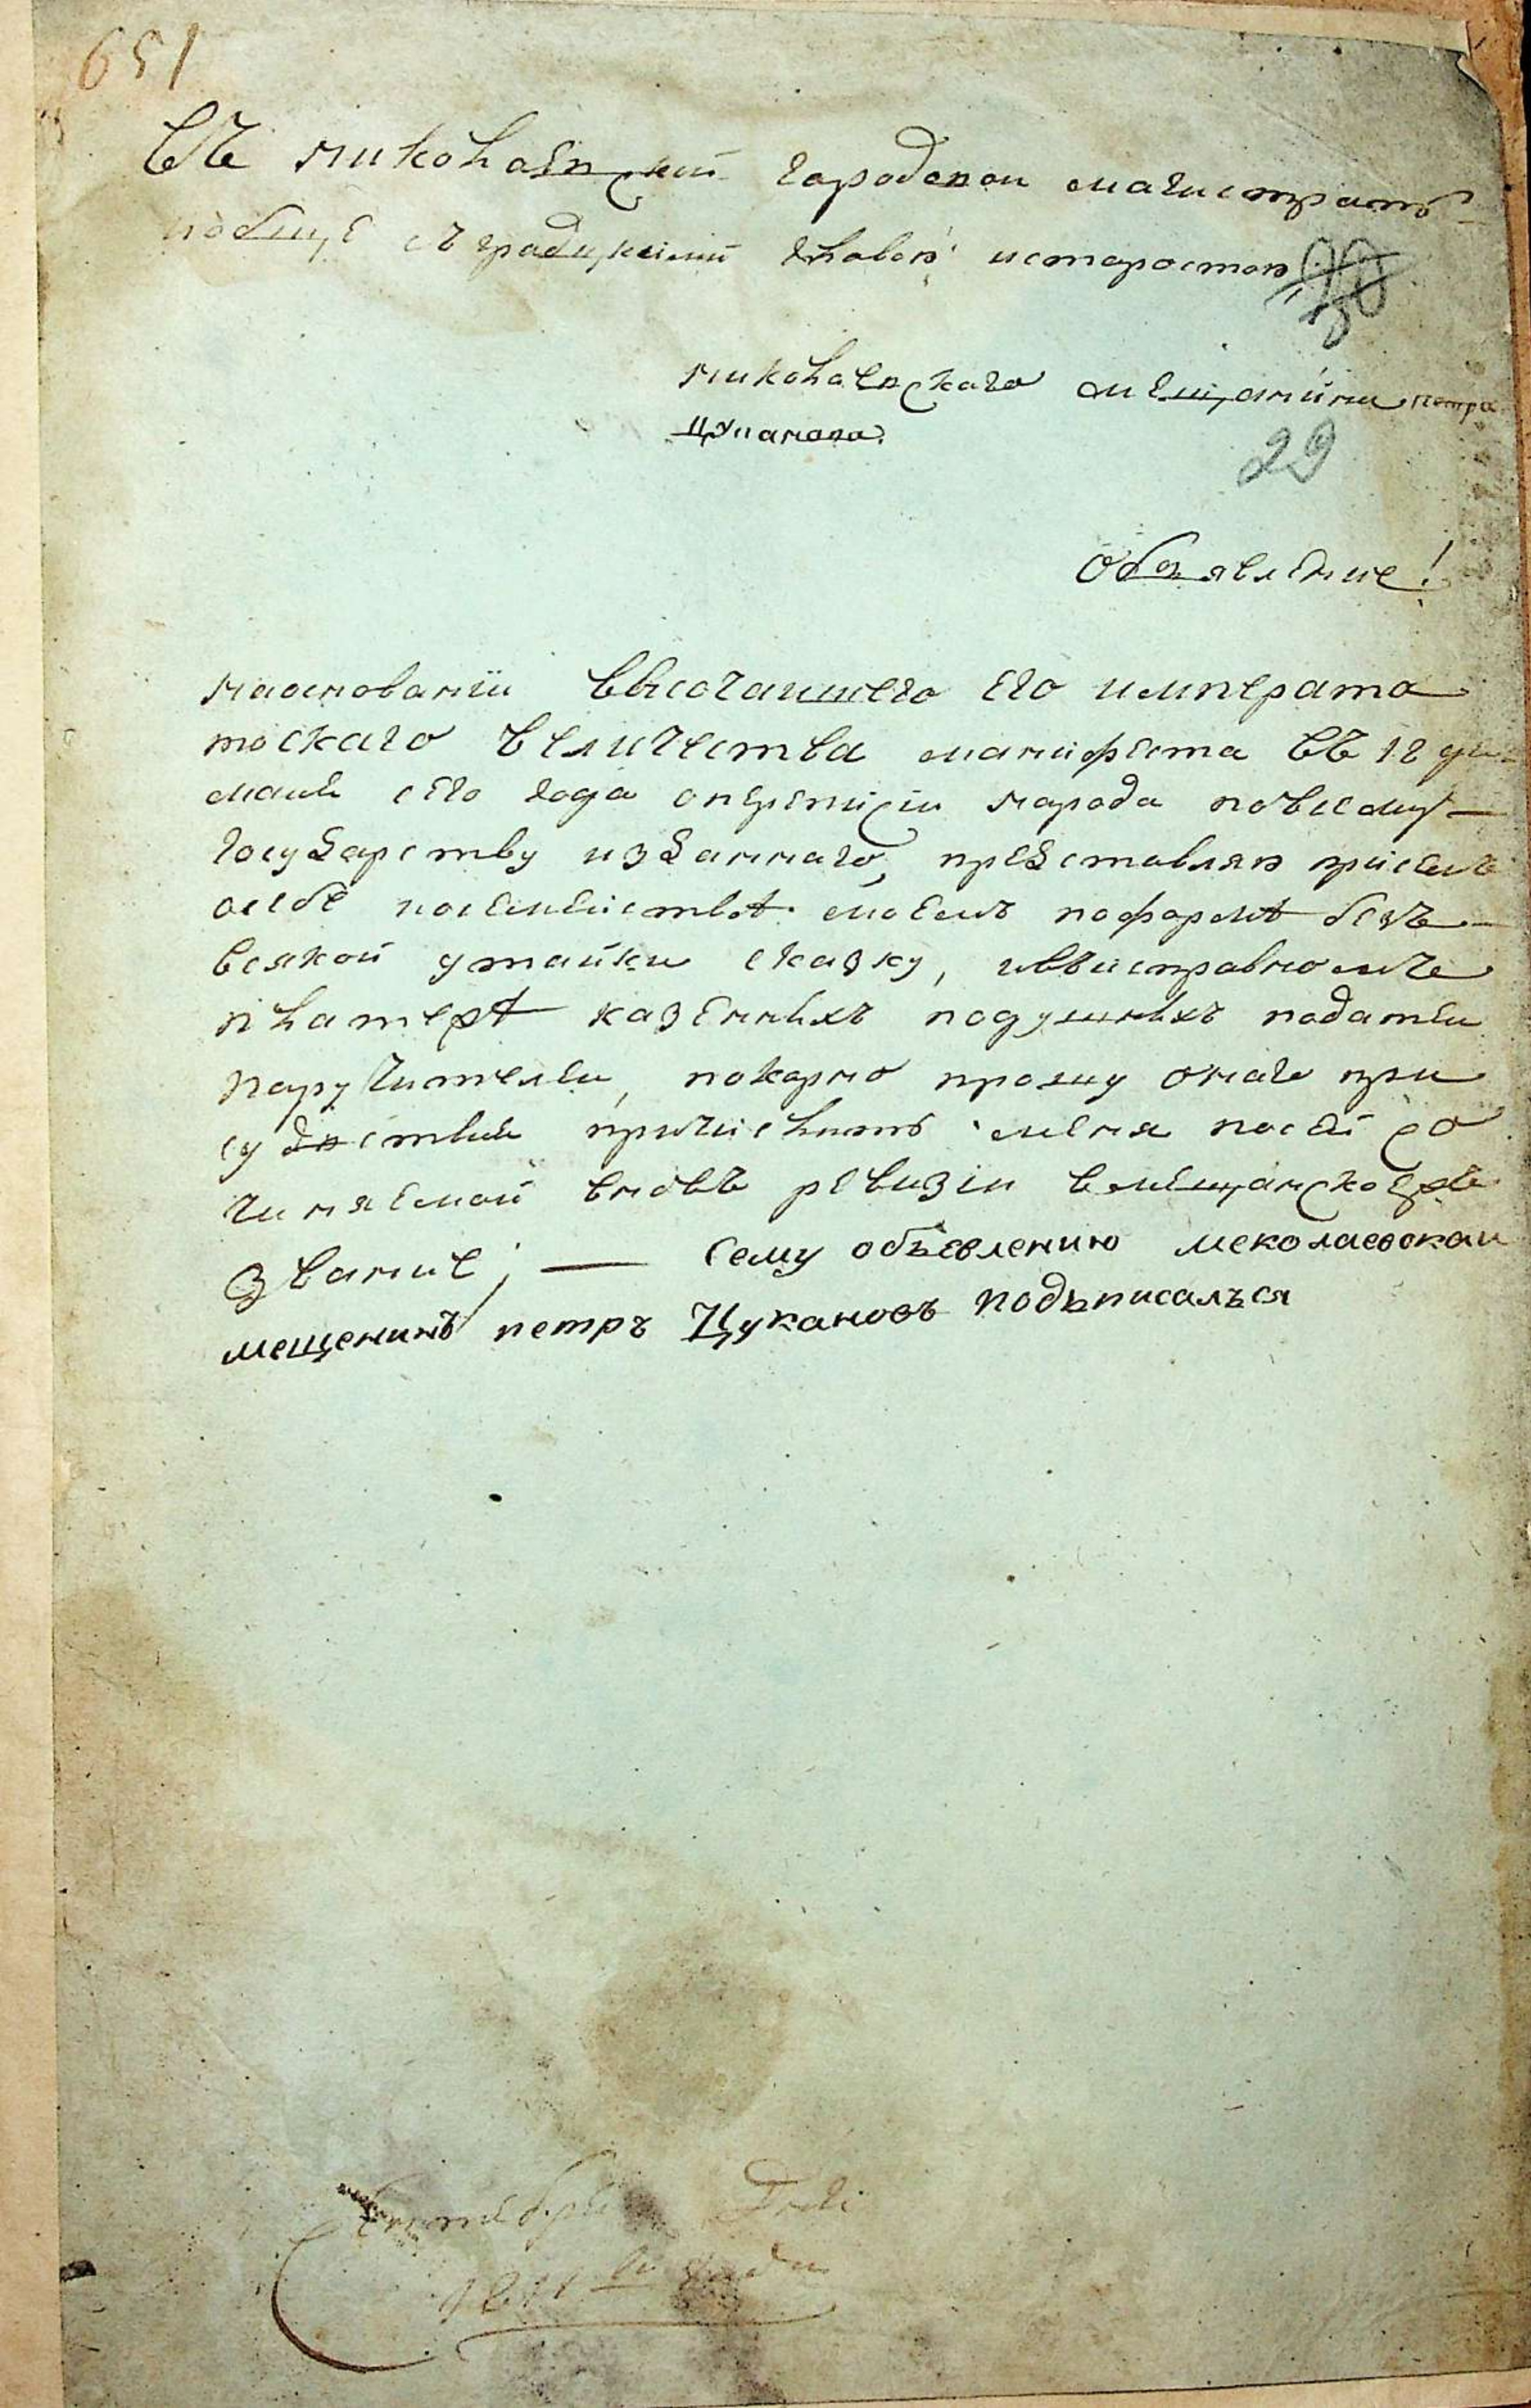 651
Въ николаевский городовои магистратъ
вобще съ градцкимй главой истаростою
30
николаевскаго мещанйна петра
Цуканова.
29
Объявление!
наосновании высочаишего его император
тоскаго величества манифеста въ 18 де
маия сего года оперeписи народа повсему
государству изданнаго, представляя присемъ
осебе иосемеиствѣ моемъ поформѣ безъ
всякой утайки сказку, иввисправномъ
платежѣ казенныхъ подушныхъ податеи
паручителеи, покорно прошу онаго при
судствия причислить меня посеи со
чиняемой вновь ревизiи вмещанское
звание; — Сему объевлению меколаевскаи
мещенинъ петръ Цукановъ подьписалься
Сентебря Дня
1811 го года